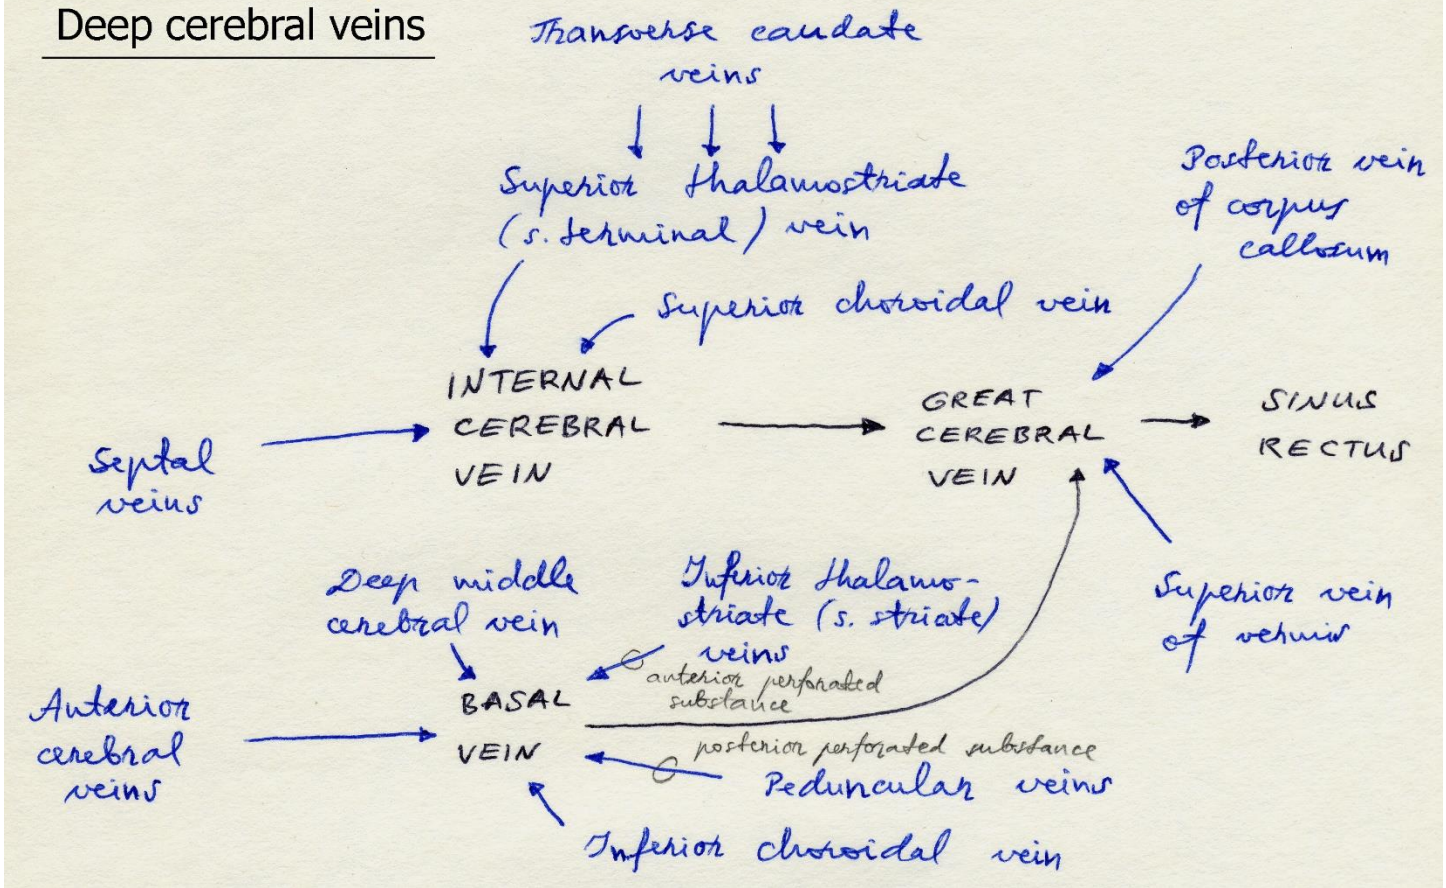 Deep cerebral veins
Transverse caudate
veins
Superior thalamostriate
(s. terminal) vein
Posterior vein
of corpus
callosum
Superior choroidal vein
INTERNAL
CEREBRAL
VEIN
GREAT
CEREBRAL
VEIN
SINUS
RECTUS
Septal
veins
Deep middle
cerebral vein
Inferior thalamo-
striate (s. striate)
veins
anterior perforated
substance
Superior vein
of vermis
Anterior
cerebral
veins
BASAL
VEIN
posterior perforated substance
Peduncular veins
Inferior choroidal vein